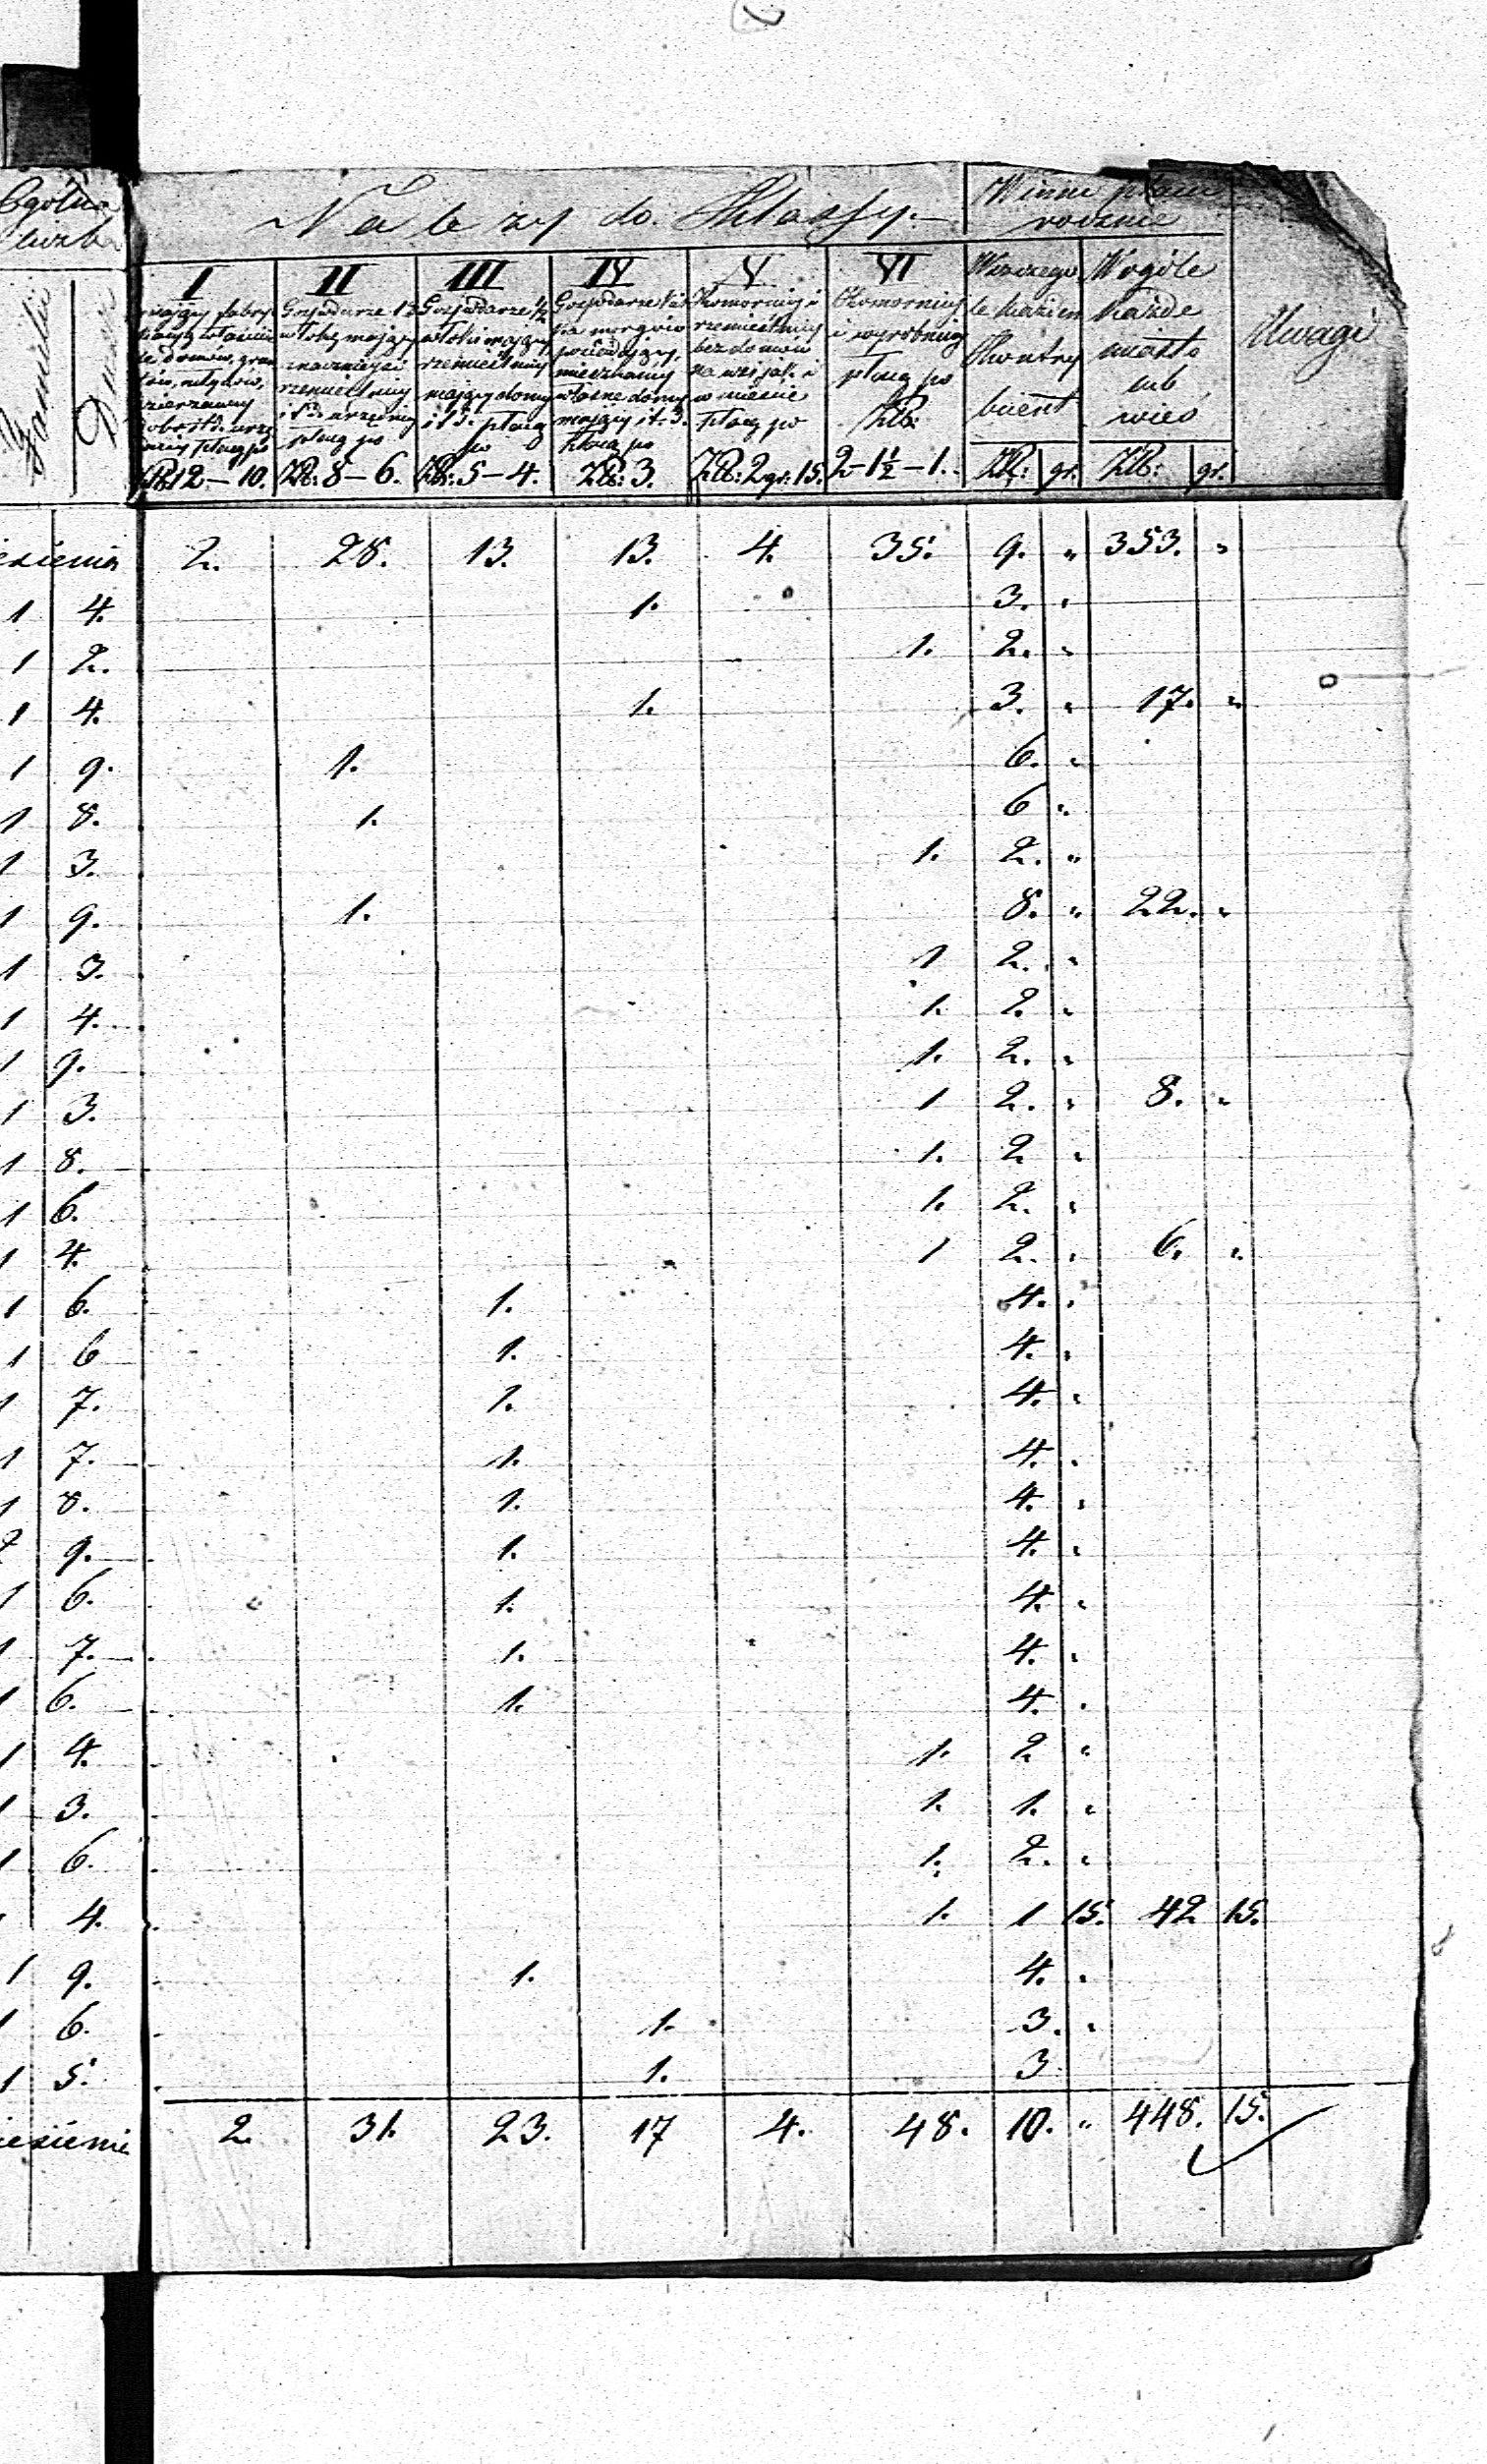 Ogólna liczba
Należy do Klassy.
Winni płacić rocznie
Uwagi
Familii
Dusz
I
II
III
IV
V
VI
mający fabryki
Gospodarze 1/2
Gospodarze 1/2
Gospodarze
Komornicy i
Komornicy
włoki mający
włoki mający
na morgów
rzemieślnicy
i wyrobnicy
domów
znaczniejsi
rzemieślnicy
posiadający,
bez domów
płacą po
rzemieślnicy
mający domy
mieszkańcy
na wsi jak i
Złt:
płacą po
i t. d. płacą po
własne domy mający i t. d. płacą po
w mieście płacą po
Złt: 12.—10.
Złt: 8—6.
Złt: 5—4.
Złt: 3.
Złt: 2 gr: 15.
2.—1½—1.
każden
Kontrybuent
Złt: gr.
W ogóle
każde
miasto
lub
wieś
Złt: gr.
esienia 2. 28. 13. 13. 4. 35. 9. " 353. "
1 4. 1. 3. "
1 2. 1. 2. "
1 4. 1. 3. " 17. "
1 9. 1. 6. "
1 8. 1. 6 "
1 3. 1. 2. "
1 9. 1. 8. " 22. "
1 3. 1 2. "
1 4. 1. 2. "
1 9. 1. 2. "
1 3. 1 2. " 8. "
1 8. 1. 2 "
1 6. 1. 2. "
1 4. 1 2. " 6. "
1 6. 1. 4. "
1 6 1. 4. "
1 7. 1. 4. "
1 7. 1. 4. "
1 8. 1. 4. "
2 9. 1. 4. "
1 6. 1. 4. "
1 7. 1. 4. "
1 6. 1. 4. "
1 4. 1. 2 "
1 3. 1. 1. "
1 6. 1. 2. "
1 4. 1. 1 15. 42 15.
1 9. 1. 4. "
1 6. 1. 3. "
1 5. 1. 3
iesienie 2. 31. 23. 17 4. 48. 10. " 448. 15.